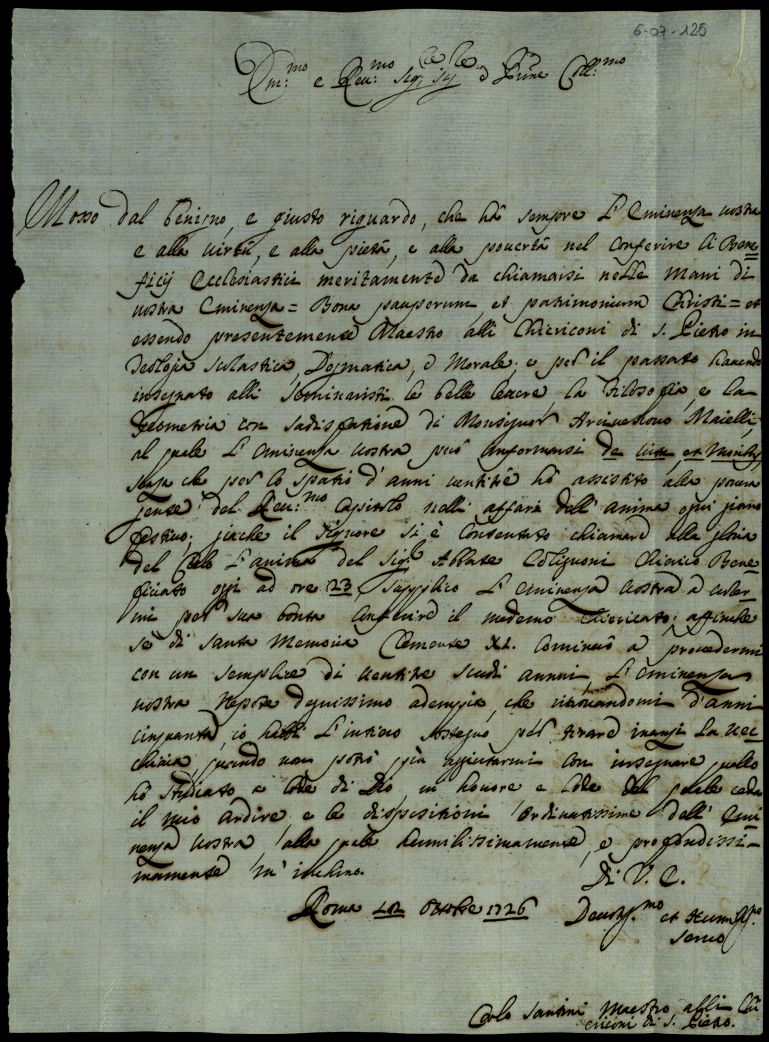 6-07-125
Em:mo e Reu:mo Sig:r Sig:r e Prne Coll:mo
Mosso dal benigno, e giusto riguardo, che hà sempre L'Eminenza vostra
e alla virtù, e alla pietà, e alla povertà nel conferire li Bene=
ficij Ecclesiastici meritamente da chiamarsi nelle mani di
vostra Eminenza = Bona pauperum et patrimonium Christi = et
essendo presentemente Maestro alli Chiericoni di S. Pietro in
Teologia Scolastica, Dogmatica, e Morale; e per il passato havendo
insegnato alli Seminaristi le belle lettere, la Filosofia, e la
Geometria con sadisfatione di Monsignor Arcivescovo Maielli,
al quale L'Eminenza vostra può informarsi de vita, et moribus,
senza che per lo spatio d'anni ventitre hò assistito alla povera
gente del Reu:mo Capitolo nelli affari dell'anima ogni giorno
festivo; giache il Signore si è contentato chiamare alla gloria
del Cielo L'anima del Sig:r Abbate Chierico Bene=
ficiato oggi ad ore 23, supplico L'Eminenza vostra a
mi per sua bontà conferire il medemo Chiericato; affinche
se di Santa Memoria Clemente XI. cominciò a provedermi
con un semplice di ventitre scudi annui, L'Eminenza
vostra Nepote degnissimo adempia, che ritrovandomi d'anni
cinquanta, io habbi L'intiero sostegno per tirare inanzi la vec=
chiaia, quando non potrò più aggiutarmi con insegnare quello
hò studiato a lode di Dio, in honore e lode del quale ceda
il mio ardire e le dispositioni ordinatissime dell'Emi=
nenza vostra alla quale humilissimamente, e profondissi=
mamente m'inchino.
Di V. E.
Roma Ottobre 1726 Devotiss:mo et Humiliss:mo
Servo
Carlo Santini Maestro alli Chi=
ericoni di S. Pietro.